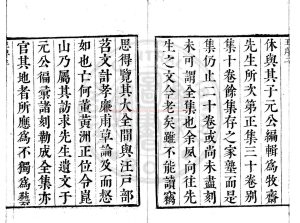 休與其子元公編輯為牧齋
先生所次第正集三十卷別
集十卷餘集存之家塾而是
集仍止二十卷或尚未盡刻
未可謂全集也余夙向往先
生之文今老矣雖不能讀竊
思得覽其大全間與汪戶部
苕文計孝廉甫草論及而惄
如也亡何董黃洲正位令崑
山乃屬其訪求先生遺文于
元公徧彙諸刻勒成全集亦
官其地者所應為不獨為藝